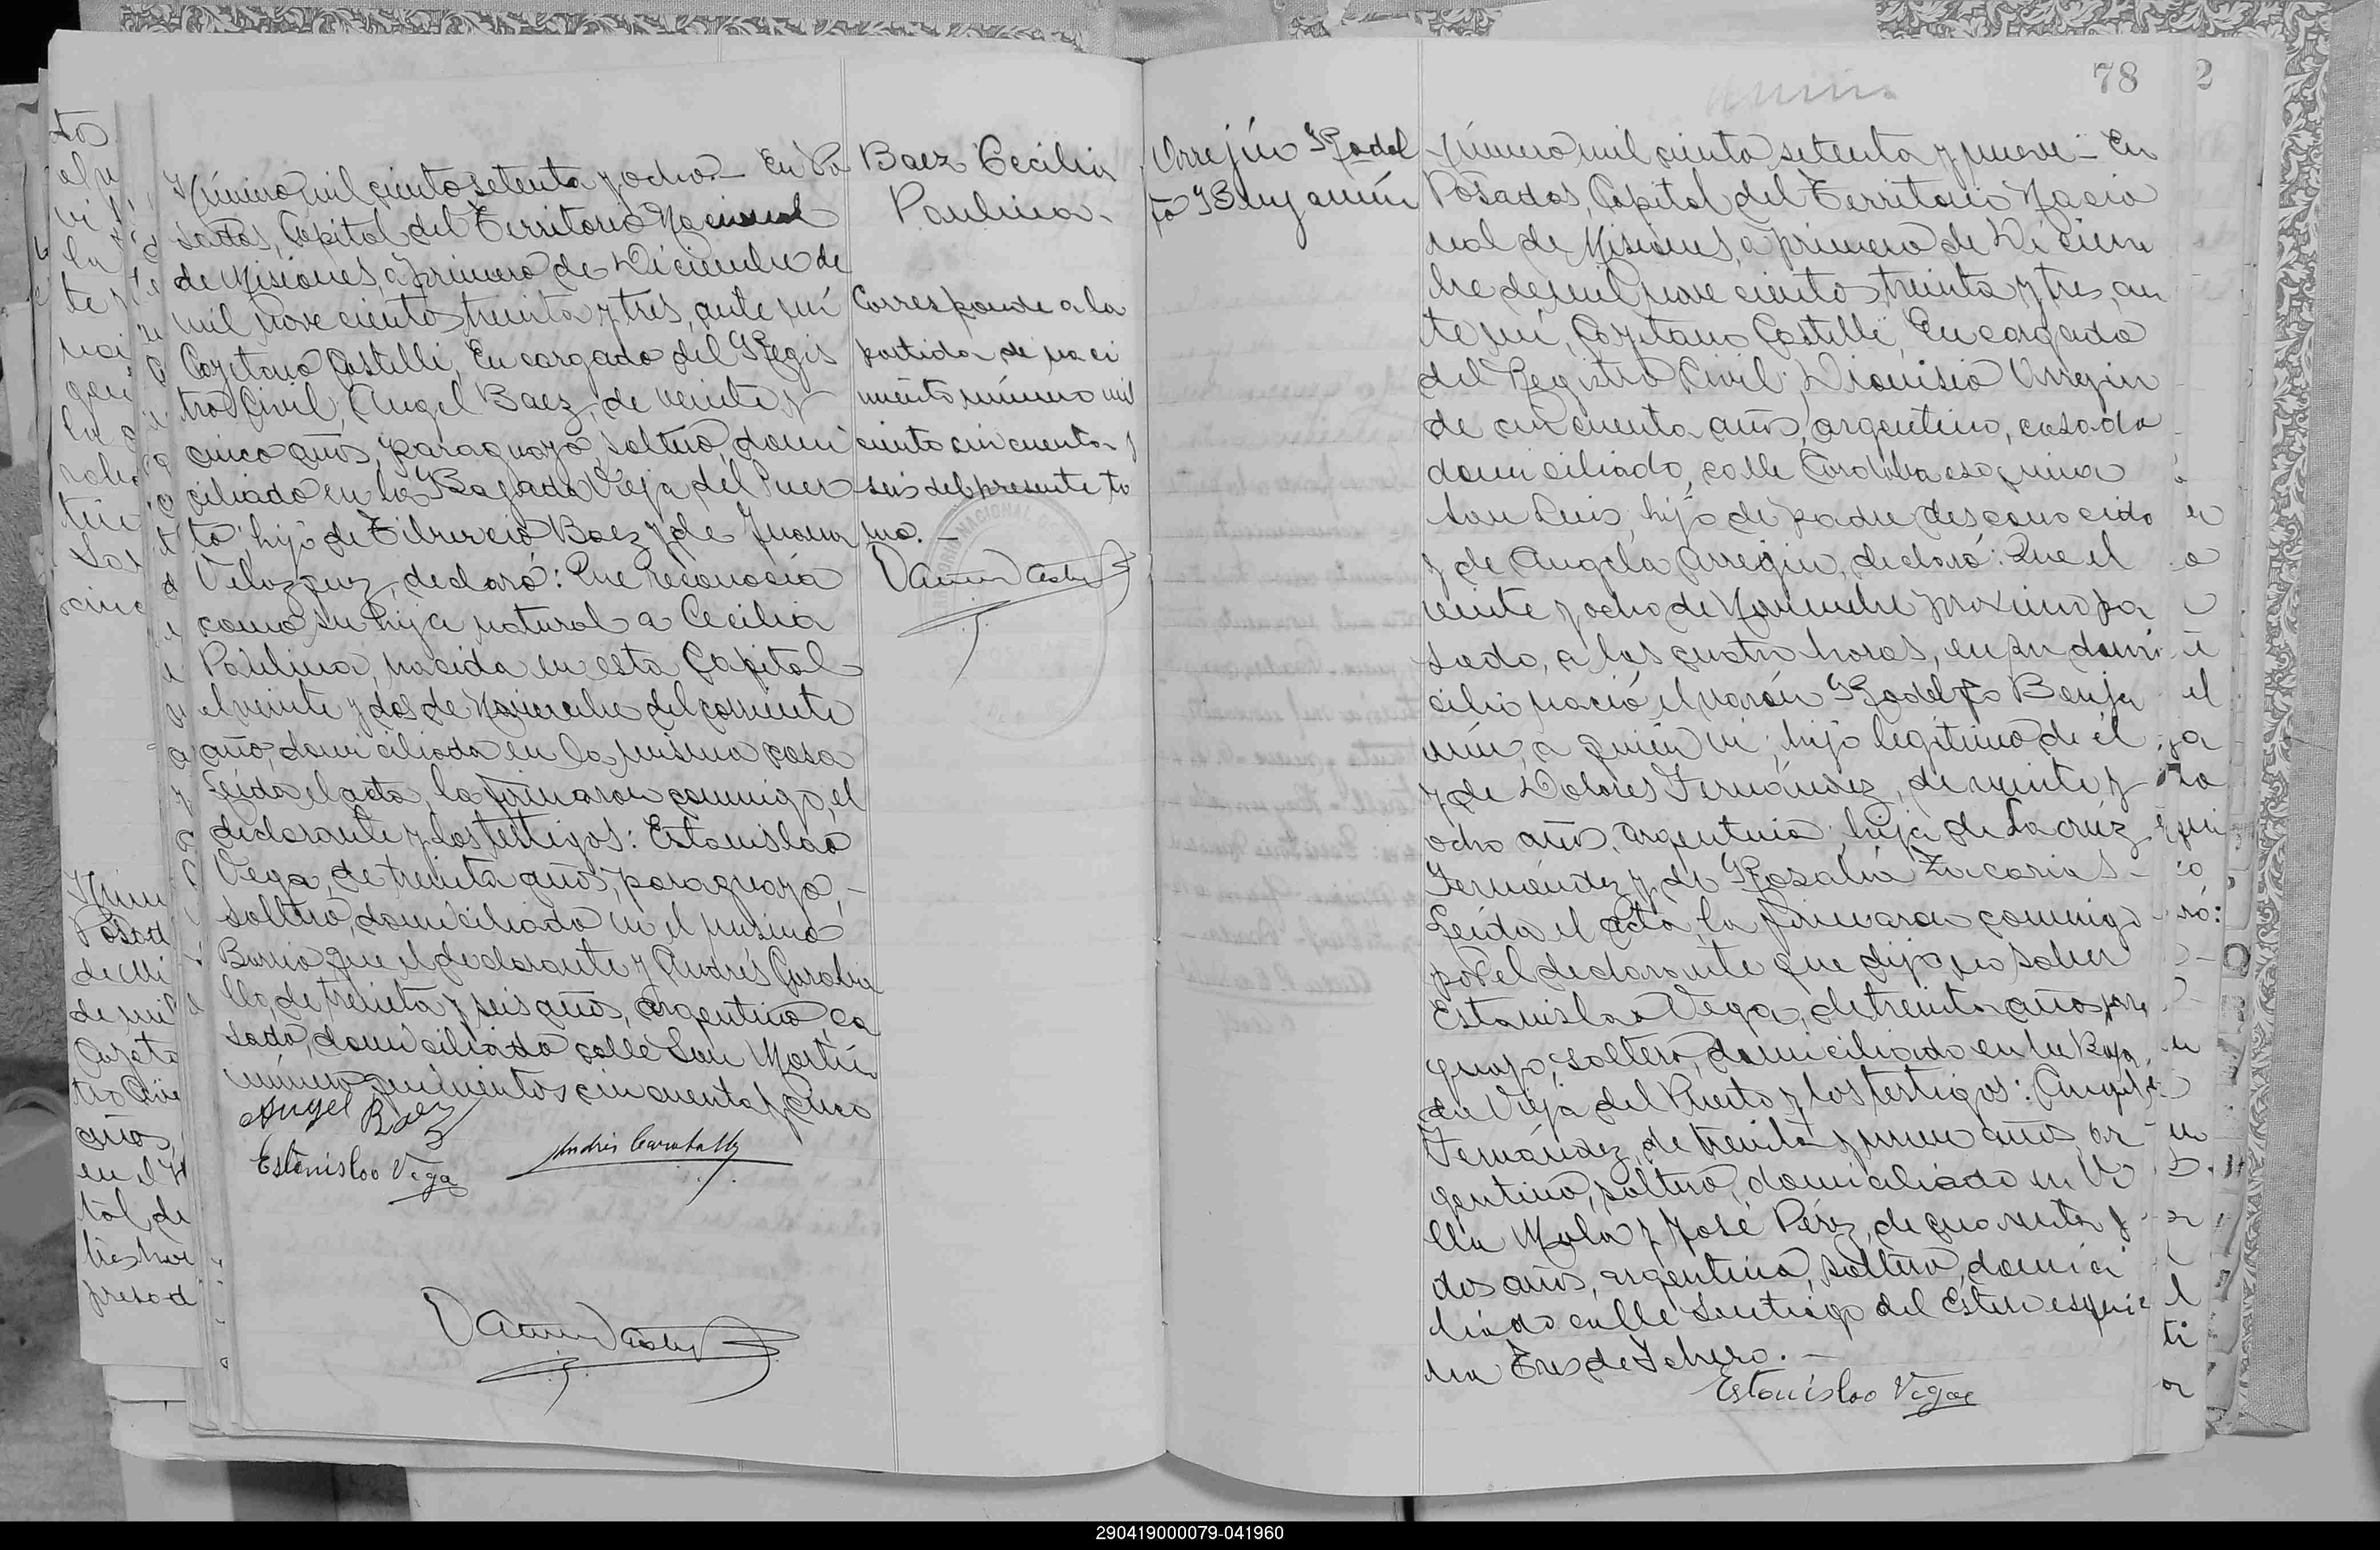 Número mil ciento setenta y ocho.- En Po
sadas, Capital del Territorio Nacional
de Misiones, a primero de Diciembre de
mil novecientos treinta y tres, ante mí
Cayetano Castelli, Encargado del Regis
tro Civil, Angel Baez, de veinte y
cinco años, paraguayo, soltero, domi
ciliado en la Bajada Vieja del Puer
to, hijo de Tiburcio Baez y de Juana
Velazquez, declaró: Que reconocía
como su hija natural a Cecilia
Paulina, nacida en esta Capital
el veinte y dos de Noviembre del corriente
año, domiciliada en la misma casa
Leída el acta, la firmaron conmigo, el
declarante y los testigos: Estanislao
Vega, de treinta años, paraguayo,-
soltero, domiciliado en el mismo
Barrio que el declarante y Andrés Caraba
llo, de treinta y seis años, argentino, ca
sado, domiciliado calle San Martín
número quinientos cincuenta y cinco
Angel Baez
Estanislao Vega
Andrés Caraballo
Baez Cecilia
Paulina.
Corresponde a la
partida de naci
miento número mil
ciento cincuenta y
seis del presente to
mo.-
Orrejín Rodol
fo Benjamín
78
2
Número mil ciento setenta y nueve - En
Posadas, Capital del Territorio Nacio
nal de Misiones, a primero de Diciem
bre de mil novecientos treinta y tres, an
te mí, Cayetano Castelli, Encargado
del Registro Civil; Dionisio Orrejin
de cincuenta años, argentino, casado
domiciliado, calle Córdoba esquina
San Luis, hijo de padre desconocido
y de Angela Arrejin, declaró: Que el
veinte y ocho de Noviembre próximo pa
sado, a las cuatro horas, en su domi
cilio nació el varón Rodolfo Benja
mín, a quien vi, hijo legítimo de él
y de Dolores Fernández, de veinte y
ocho años, argentina, hija de Lacruz
Fernández y de Rosalía Zacarias-
Leída el acta, la firmaron conmigo
por el declarante que dijo no saber
Estanislao Vega, de treinta años, para
guayo, soltero, domiciliado en la Baja
da Vieja del Puerto y los testigos:
Fernández, de treinta y nueve años, ar
gentino, soltero, domiciliado en Vi
lla Mola y José Pérez, de cuarenta y
dos años, argentino, soltero, domici
liado calle Santiago del Estero esqui
na Tres de Febrero.-
Estanislao Vega
290419000079-041960